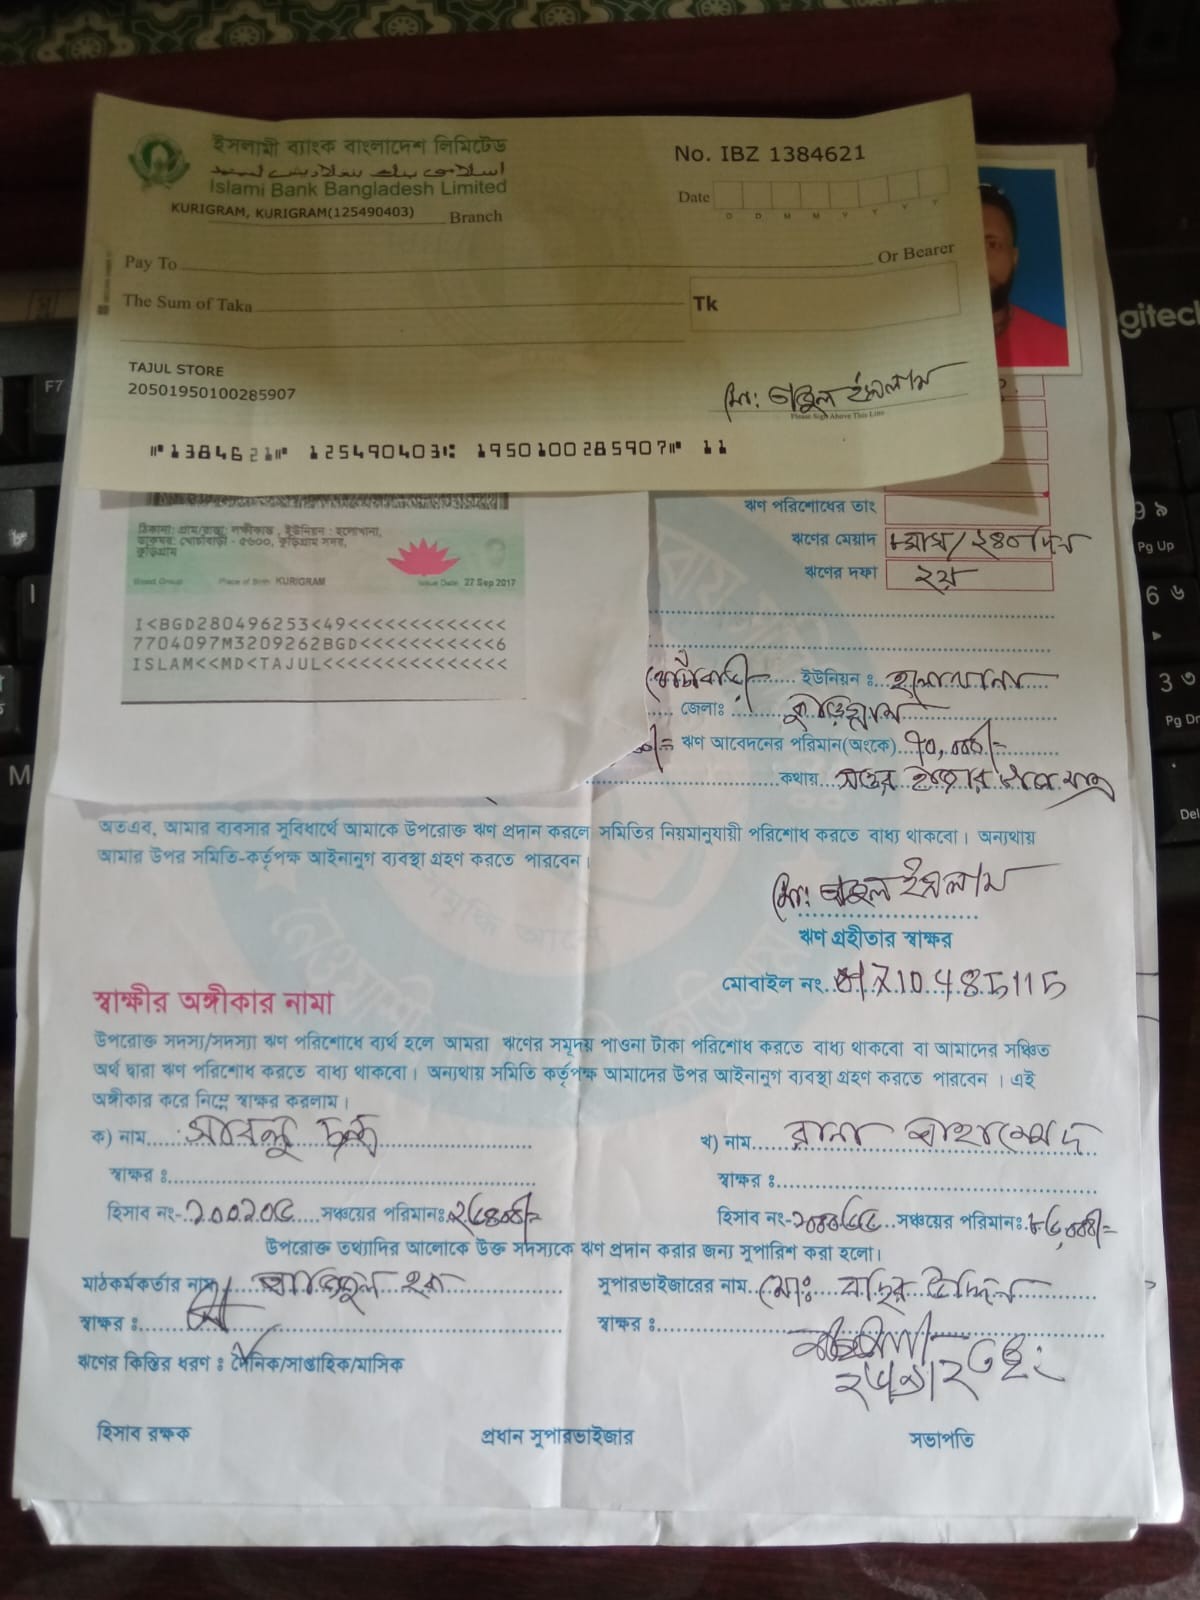 ইসলামী ব্যাংক বাংলাদেশ লিমিটেড
Islami Bank Bangladesh Limited
KURIGRAM, KURIGRAM(125490403) Branch
No. IBZ 1384621
Date
D D M M Y Y Y Y
Pay To Or Bearer
The Sum of Taka Tk
TAJUL STORE
20501950100285907
মো: তাজুল ইসলাম
Please Sign Above This Line
⑈1384621⑈ 125490403⑆ 1950100285907⑈ 11
gitech
F7
9 ৯
Pg Up
6 ৬
3 ৩
Pg Dn
Del
M
ঋণ পরিশোধের তাং
ঋণের মেয়াদ ৮মাস/২৪০দিন
ঋণের দফা ২য়
ঠিকানা: গ্রাম/রাস্তা: , ইউনিয়ন : হলোখানা,
ডাকঘর: - ৫৬০০, কুড়িগ্রাম সদর,
কুড়িগ্রাম
Blood Group Place of Birth: KURIGRAM Issue Date: 27 Sep 2017
I<BGD280496253<49<<<<<<<<<<<<<
7704097M3209262BGD<<<<<<<<<<<6
ISLAM<<MD<TAJUL<<<<<<<<<<<<<<<
ইউনিয়ন : হলোখানা
জেলাঃ কুড়িগ্রাম
ঋণ আবেদনের পরিমান(অংকে) ৭০,০০০/=
কথায় সত্তর হাজার টাকা মাত্র
অতএব, আমার ব্যবসার সুবিধার্থে আমাকে উপরোক্ত ঋণ প্রদান করলে সমিতির নিয়মানুযায়ী পরিশোধ করতে বাধ্য থাকবো। অন্যথায়
আমার উপর সমিতি-কর্তৃপক্ষ আইনানুগ ব্যবস্থা গ্রহণ করতে পারবেন।
মো: তাজুল ইসলাম
ঋণ গ্রহীতার স্বাক্ষর
মোবাইল নং. 01710485115
স্বাক্ষীর অঙ্গীকার নামা
উপরোক্ত সদস্য/সদস্যা ঋণ পরিশোধে ব্যর্থ হলে আমরা ঋণের সমূদয় পাওনা টাকা পরিশোধ করতে বাধ্য থাকবো বা আমাদের সঞ্চিত
অর্থ দ্বারা ঋণ পরিশোধ করতে বাধ্য থাকবো। অন্যথায় সমিতি কর্তৃপক্ষ আমাদের উপর আইনানুগ ব্যবস্থা গ্রহণ করতে পারবেন । এই
অঙ্গীকার করে নিম্নে স্বাক্ষর করলাম।
ক) নাম বাবলু চন্দ্র
খ) নাম রানা আহাম্মেদ
স্বাক্ষর :
স্বাক্ষর :
হিসাব নং- সঞ্চয়ের পরিমানঃ
হিসাব নং- সঞ্চয়ের পরিমানঃ
উপরোক্ত তথ্যাদির আলোকে উক্ত সদস্যকে ঋণ প্রদান করার জন্য সুপারিশ করা হলো।
মাঠকর্মকর্তার নাম হক
সুপারভাইজারের নাম মোঃ উদ্দিন
স্বাক্ষর :
স্বাক্ষর :
ঋণের কিস্তির ধরণ : দৈনিক/সাপ্তাহিক/মাসিক
হিসাব রক্ষক প্রধান সুপারভাইজার সভাপতি